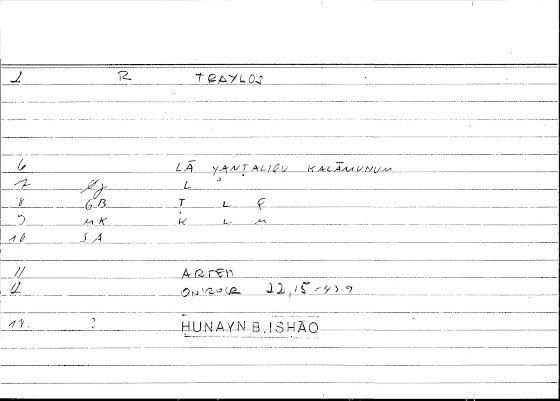 1 R TRAYLOS
6 LĀ YANṬALIQU KALĀMUHUM
7 L
8 GB Ṭ L Q
9 MK K L M
10 SA
11 ARTEM
12 ONIROCR 22,15 = 43.9
14. ? HUNAYN B. ISHĀQ